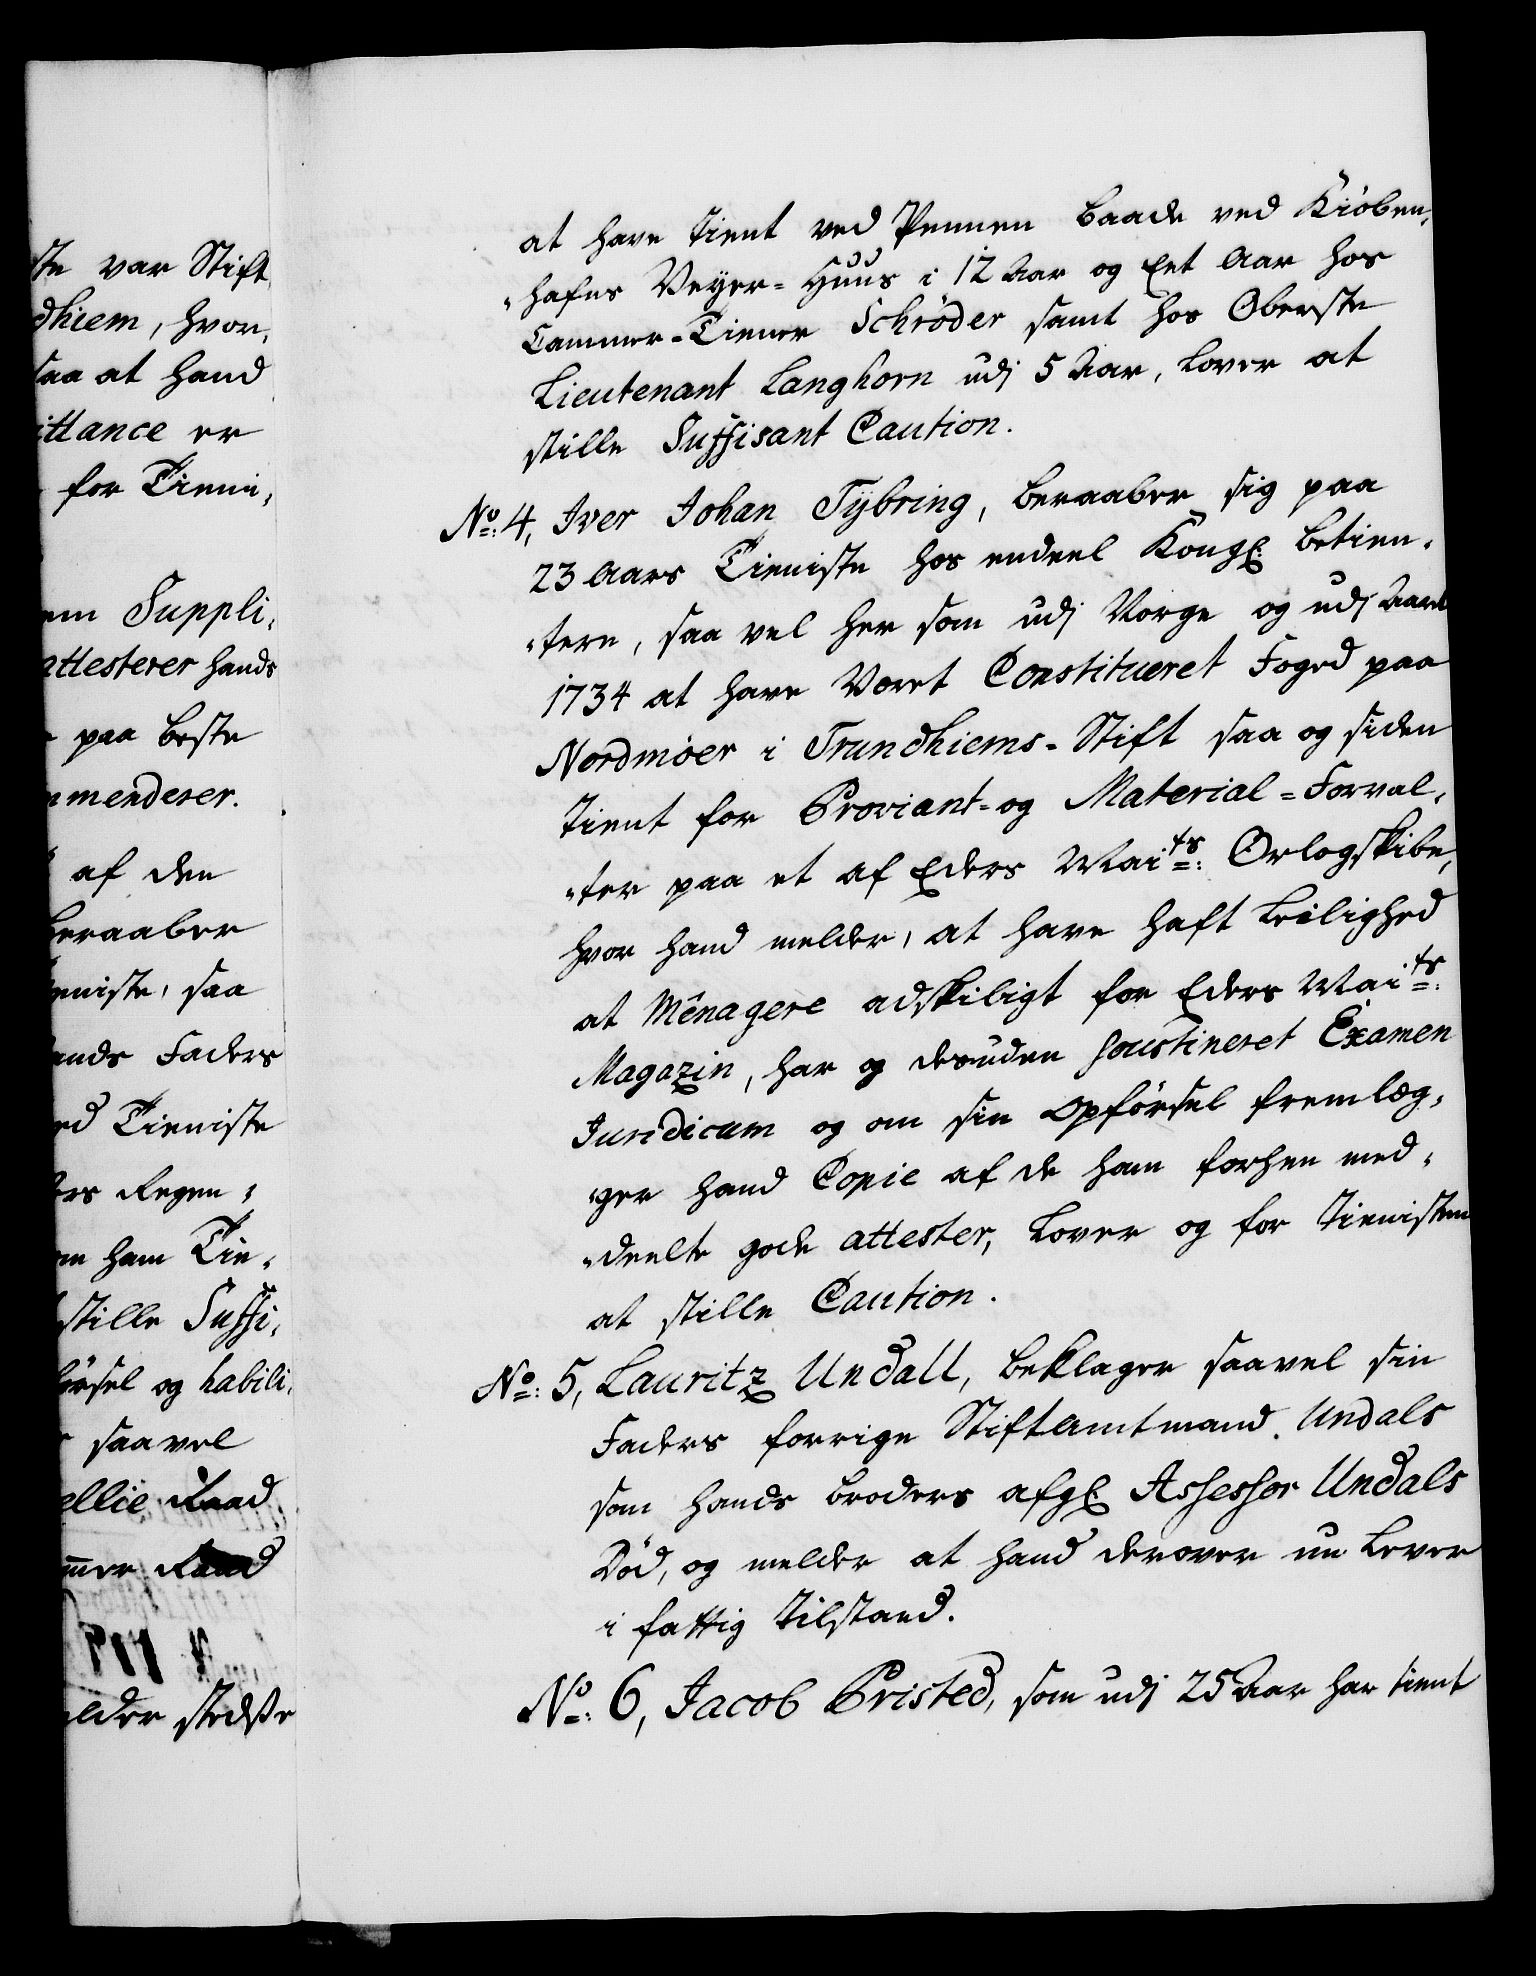 ste var Stift
dhiem, hvor,
saa at hand
ittance er
for Tieni,
em Suppli,
attesterer hands
paa beste
mmenderer.
af den
beraaber
eniste, saa
ands Faders
ed Tieniste
ers Regen,
om ham Tie,
stille Suffi,
førsel og habili,
saavel
ellie Raad
mer Raad
elder stedse
at have tient ved Pennen baade ved Kiøben,
"hafns Veyer-Huus i 12 Aar og Eet Aar hos
Cammer-Tiener Schrøder samt hos Oberste
Lieutenant Langhorn udj 5 Aar, lover at
stille Suffisant Caution.
No: 4, Iver Johan Tÿbring, beraaber sig paa
23 Aars Tieniste hos endeel Kongl: betien,
"tere, saa vel her som udj Norge og udj Aaret
1734 at have Været Constitueret Foged paa
Nordmøer i Trundhiems-Stift saa og siden
tient for Proviant- og Material-Forval,
"ter paa et af Eders Maits: Orlogskibe,
hvor hand melder, at have haft Leilighed
at Mênagere adskiligt for Eders Maits:
Magazin, har og desuden soustineret Examen
Juridicum og om sin Opførsel fremlæg,
"ger hand Copie af de ham forhen med,
"deelte gode attester, lover og for tienisten
at stille Caution.
No: 5, Lauritz Undall, beklager saavel sin
Faders forrige Stiftamtmand Undals
som hands broders afgl: Assessor Undals
Død, og melder at hand derover nu lever
i fattig tilstand.
No: 6, Jacob Pristed, som udj 25 Aar har tient